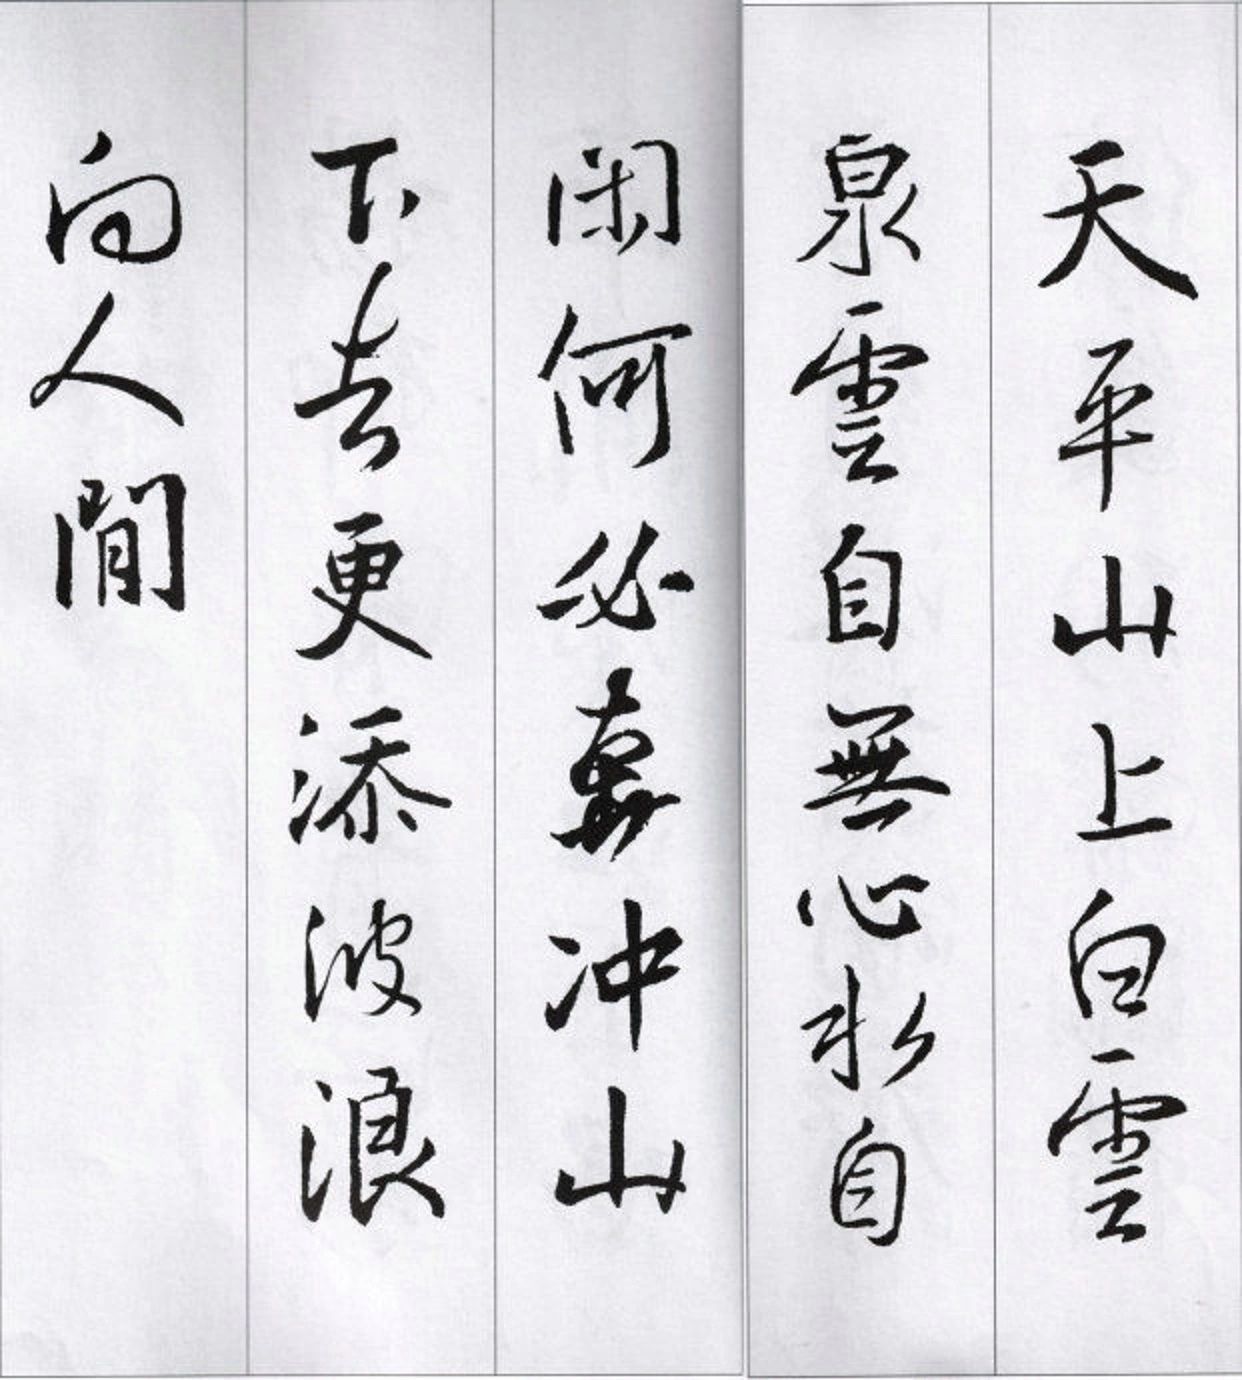 天平山上白雲
泉雲自無心水自
閑何必奔冲山
下去更添波浪
向人閒